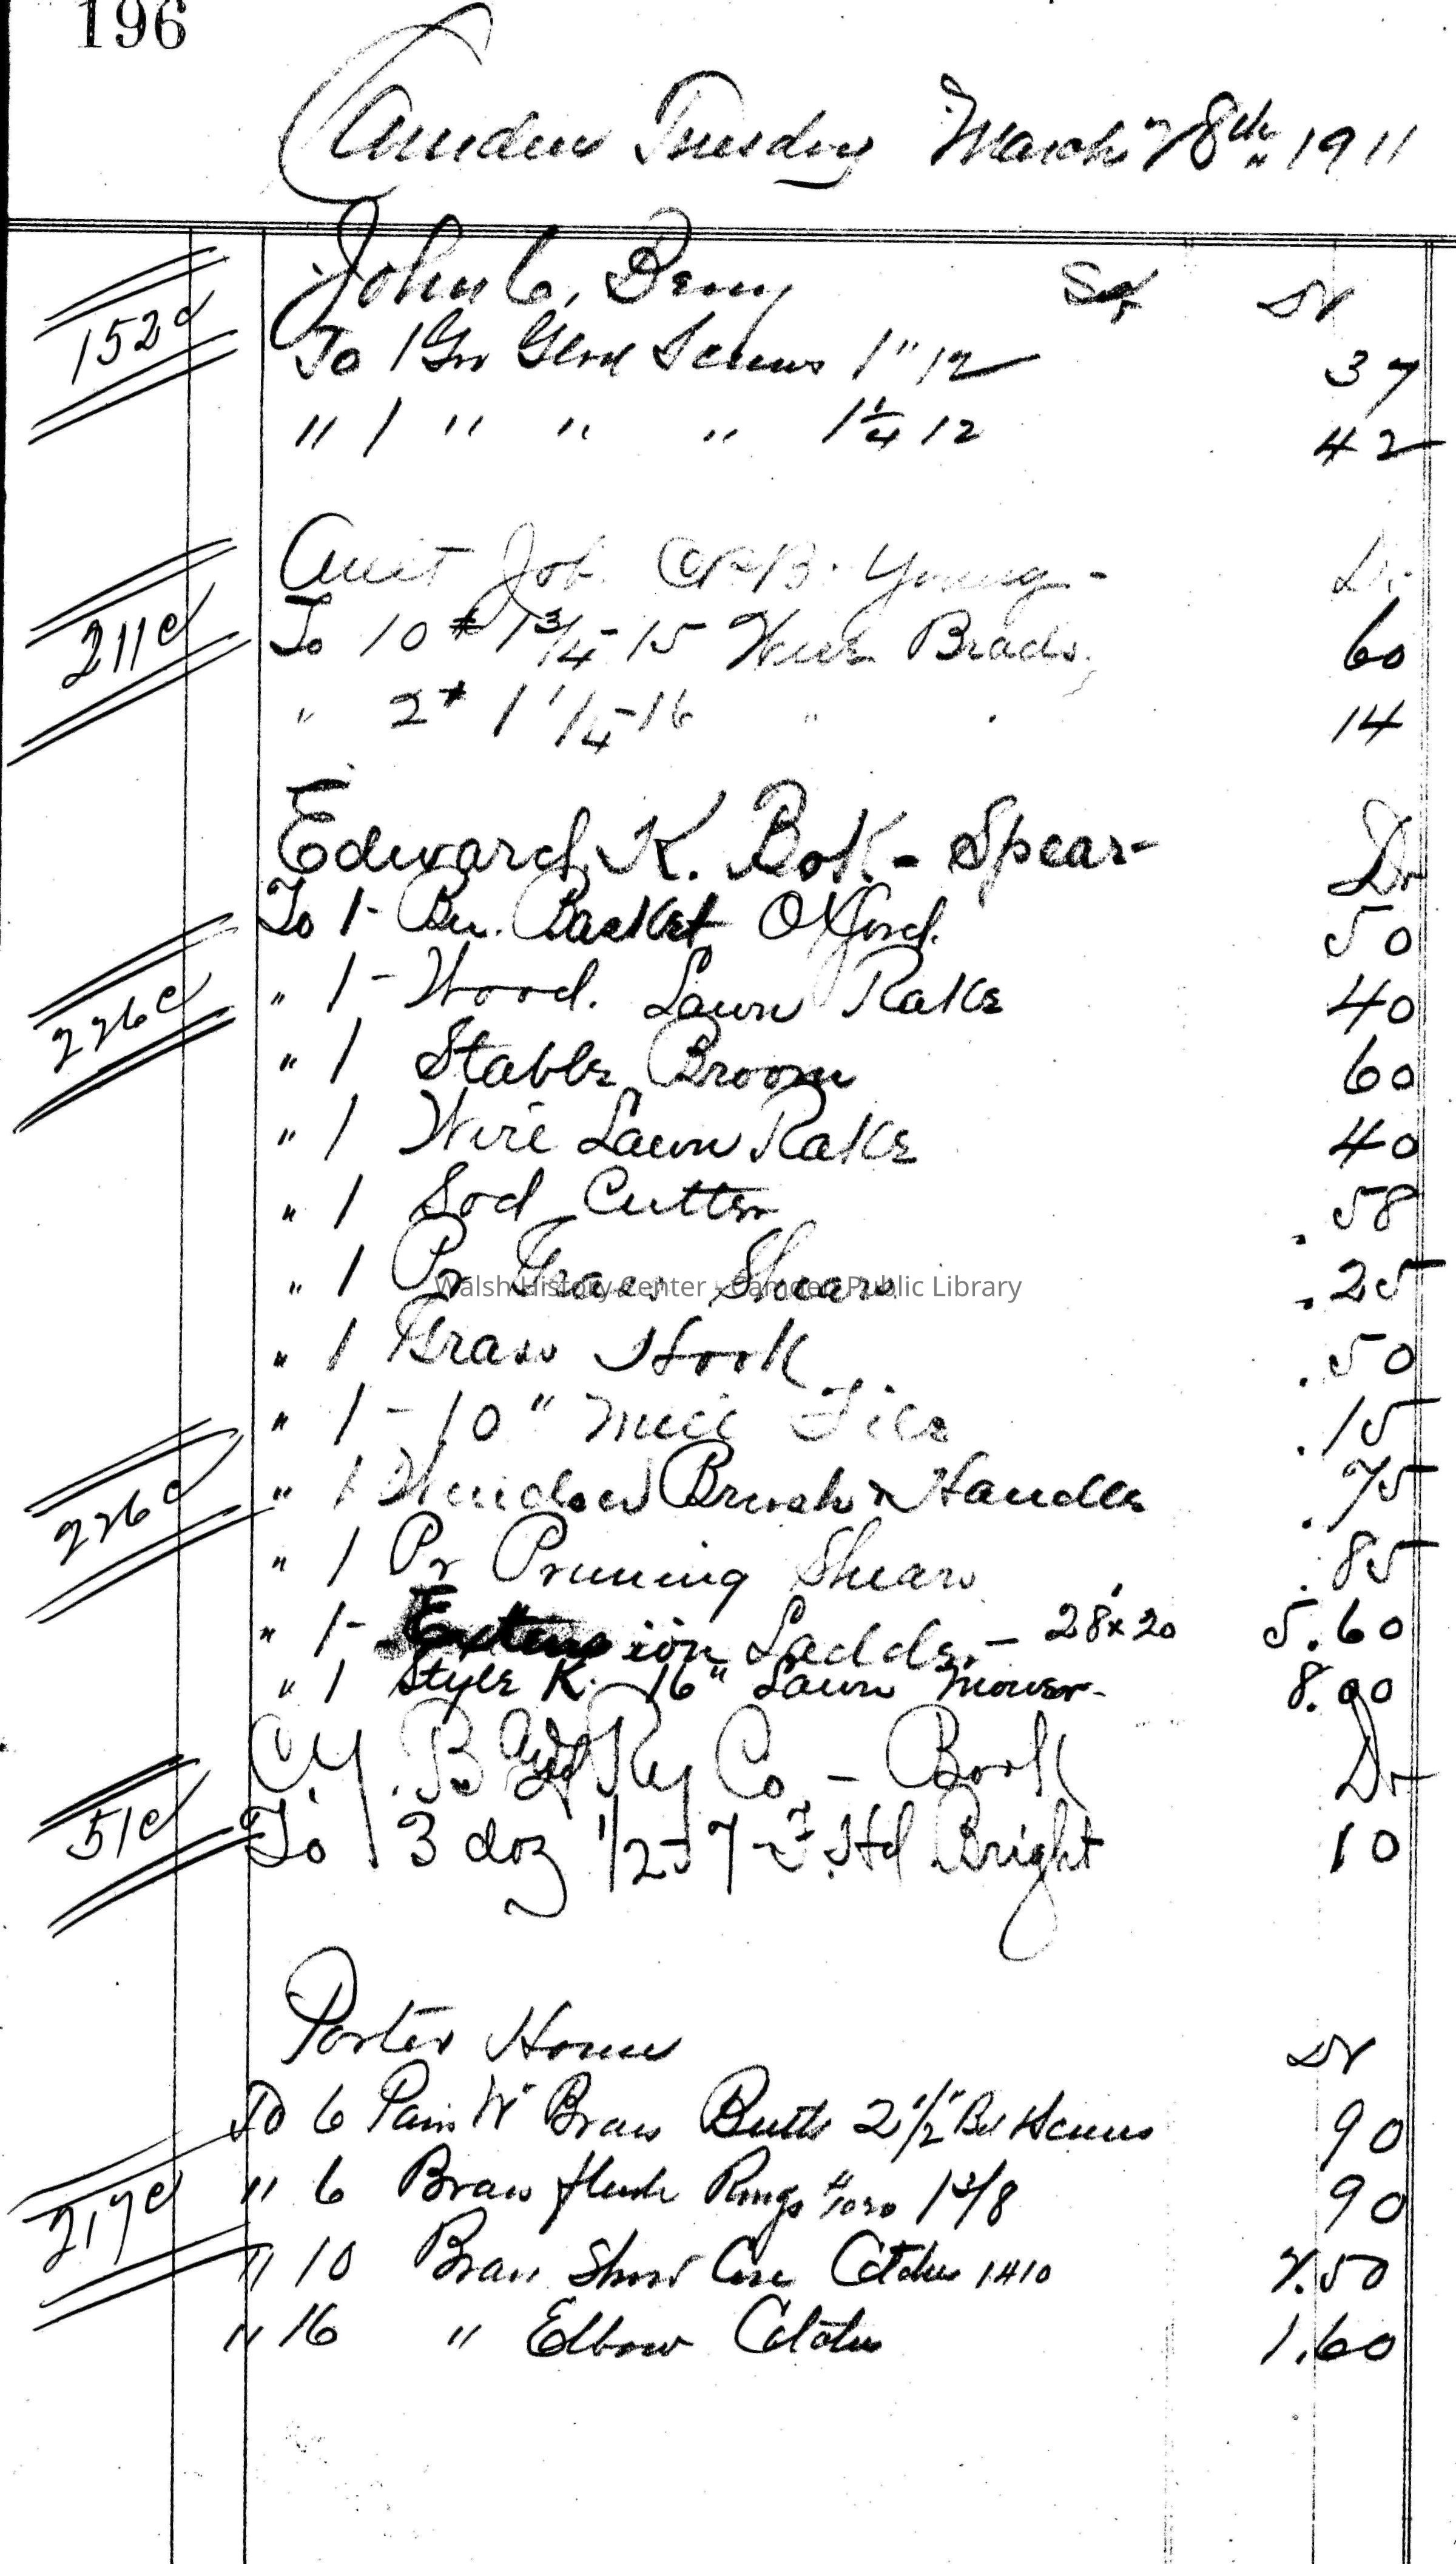 196
Camden Tuesday March 28th " 1911
John C. Berry Dr
152d
To 1 Gro Screws 1" 12 37
" 1 " " " 1 1/4 12 42
Job Young - Dr
211d
To 10 # 1 3/4-15 Wire Brads. 60
" 2 # 1 1/4-16 " . 14
Edward K. Bok - Spear - Dr
To 1 - Bu. Basket Oxford. 50
226d
" 1 - Wood. Lawn Rake 40
" 1 Stable Broom 60
" 1 Wire Lawn Rake 40
" 1 Sod Cutter .58
" 1 Pr Grass Shears .25
Walsh History Center - Camden Public Library
" 1 Grass Hook .50
" 1 - 10" Mill File .15
226d
" 1 Window Brush & Handle .75
" 1 Pr Pruning Shears .85
" 1 - Extension Ladder - 28' x 20 5.60
" 1 Style K. 16" Lawn Mower - 8.00
B Ry Co - Book Dr
51d
To 3 doz 1/2 - 7 - F. Hd Bright 10
Porter House Dr
To 6 Pair Brass Butts 2 1/2" Screws 90
217d
" 6 Brass flush Rings 1 3/8 90
" 10 Brass Show Case Catches 1410 2.50
" 16 " Elbow Catches 1.60